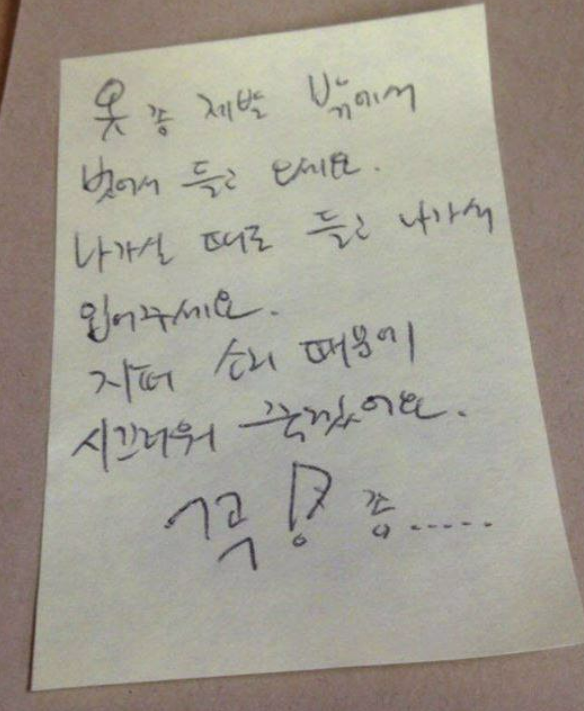 옷 좀 제발 밖에서
벗어서 들고 오세요.
나가실 때도 들고 나가서
입어주세요.
지퍼 소리 때문에
시끄러워 죽겠어요.
꼭! 좀.....